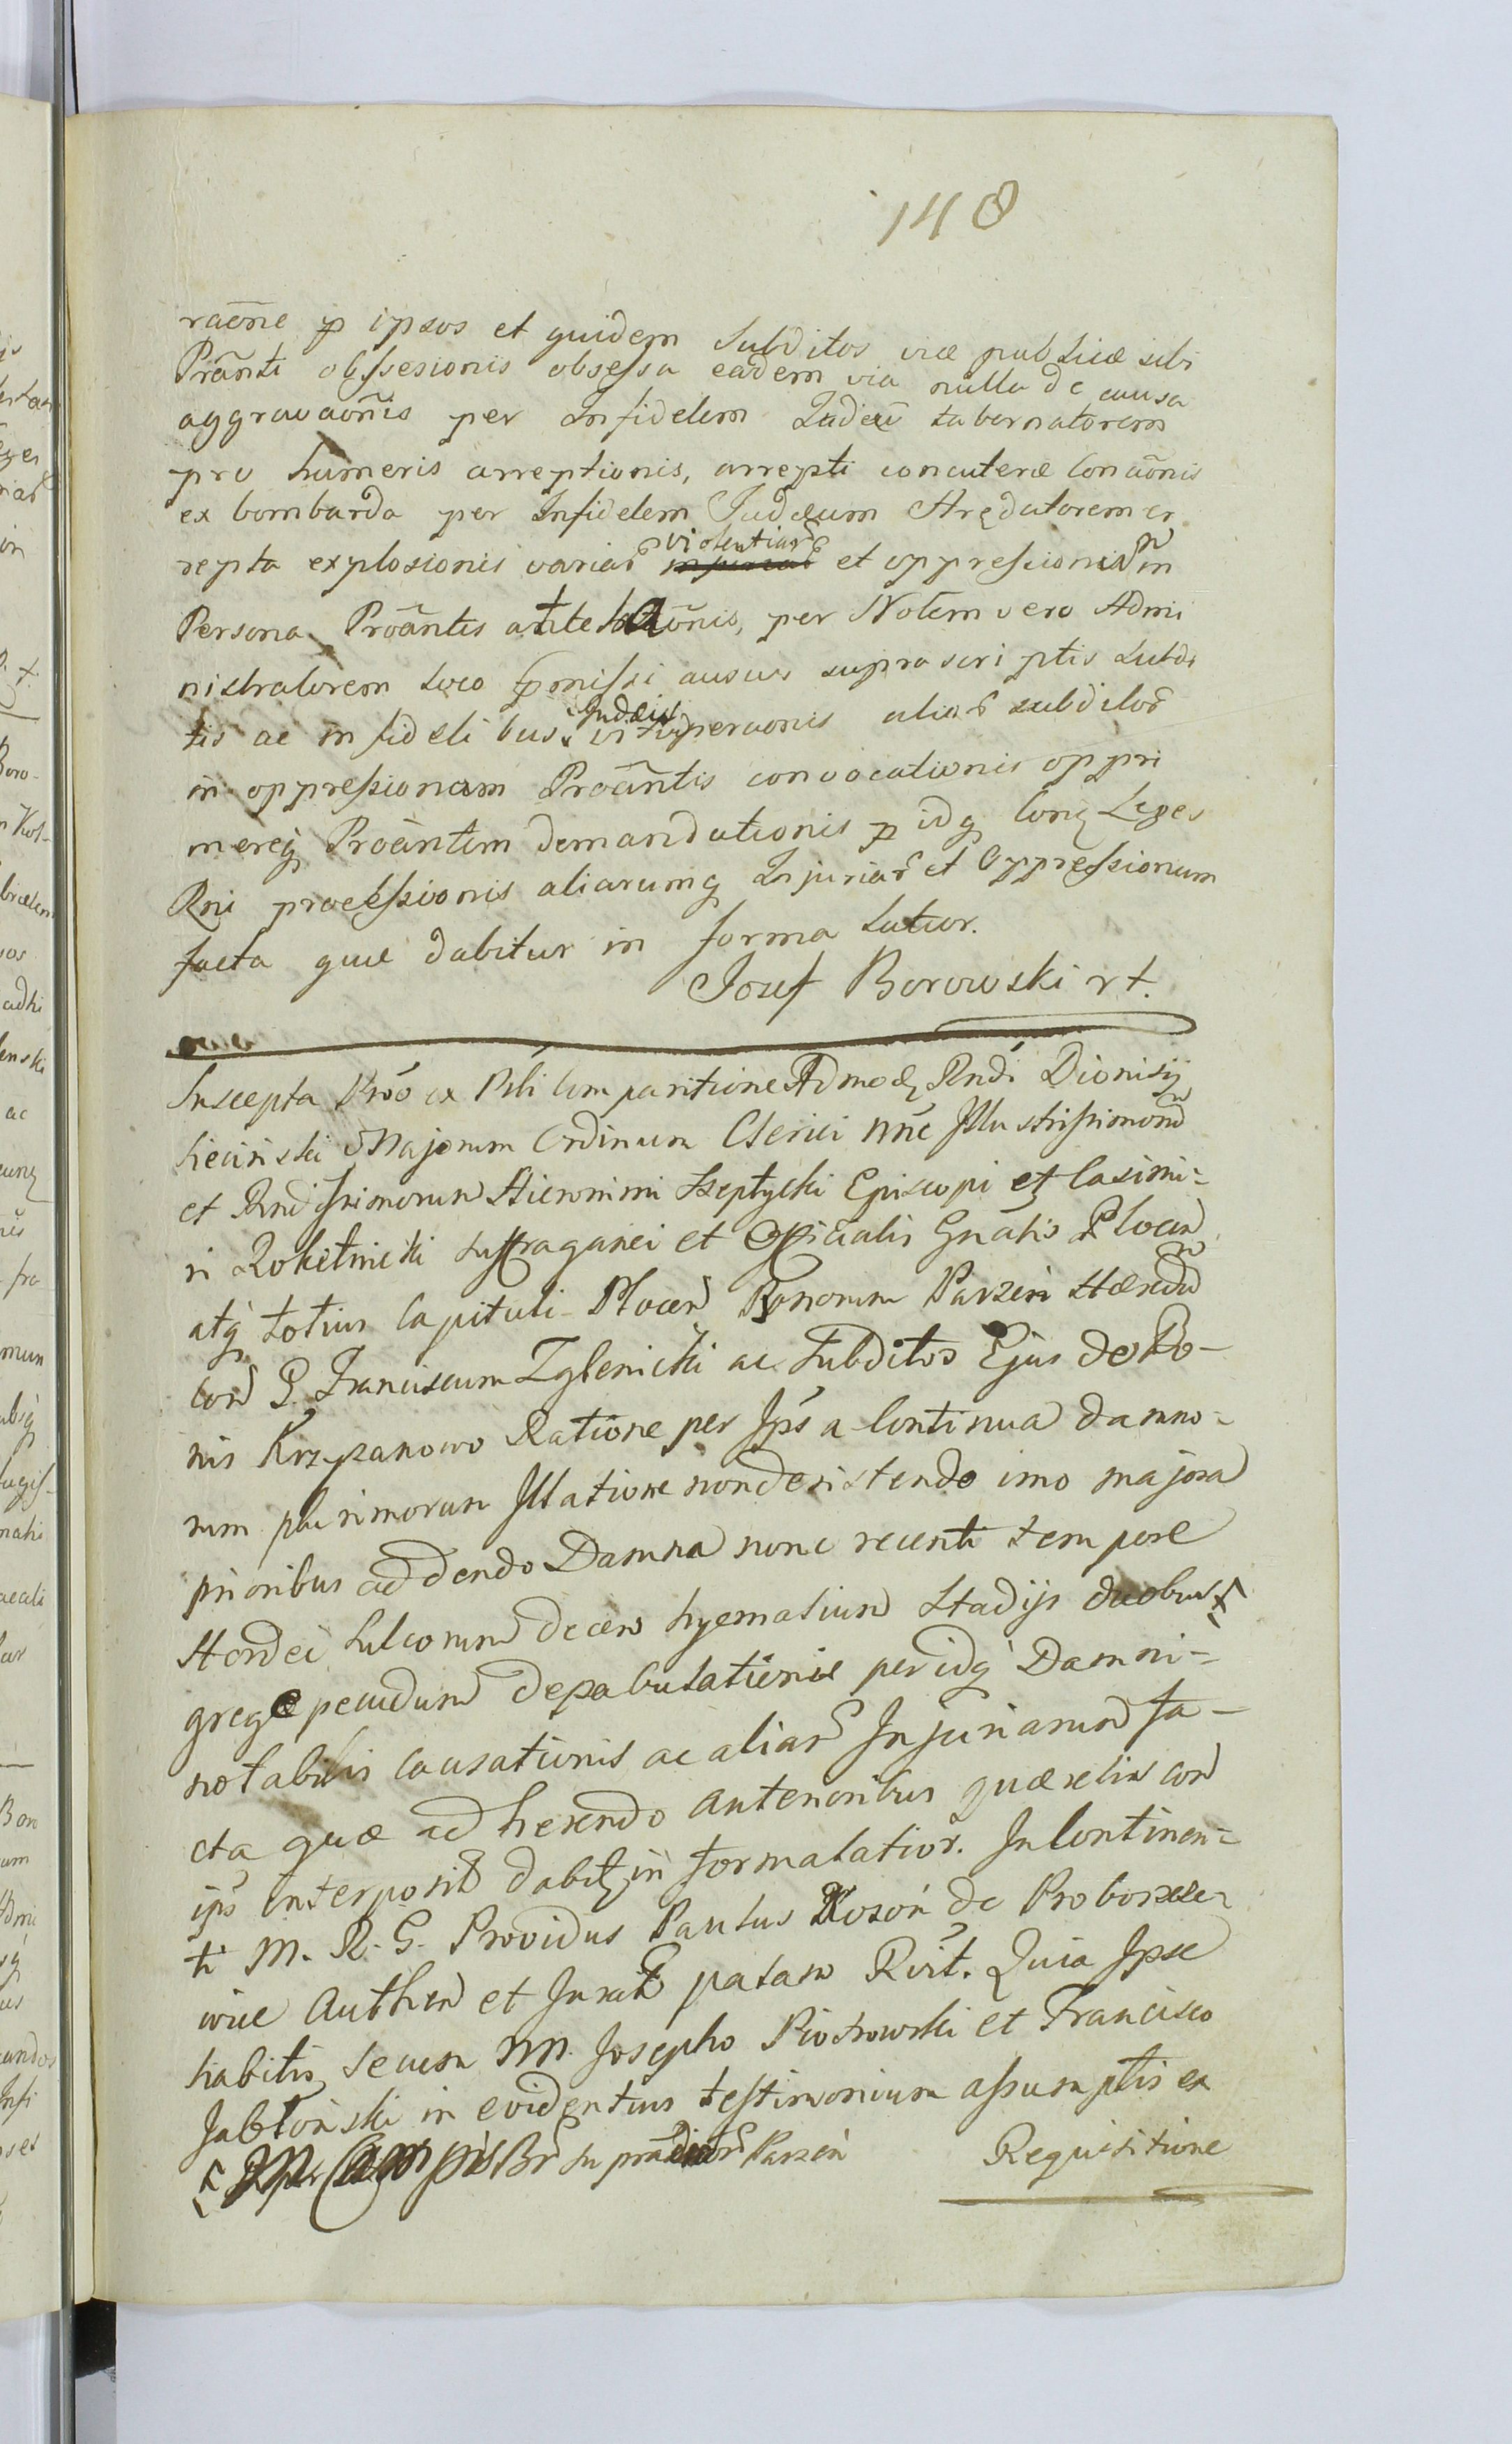 148
raōne p ipsos et quidem Subditos viæ publicæ sibi
Prānti obsessionis obsessa eadem via nulla de causa
aggravaōnis per Infidelem Judeū tabernatorem
pro humeris arreptionis, arrepti concuteræ Conaōnis
ex bombarda per Infidelem Judæum Arędatorem er
repta explosionis variar violentiar et oppressionū in
Persona Proāntis attentaōnis, per Notem vero Admi
nistratorem loco pmissi ausus suprascriptis Subdi
tis ac infidelibus Judæis vituperaonis alior subditor
in oppressionem Proāntis convocationis oppri
mereq Proāntem demandationis p idq Conz Leges
Rni processionis aliarumq Injuriar et Oppressionum
facta quæ dabitur in forma latior.
Josef Borowski rt.
Suscepta Prōo ex Psli Comparitione Admodz Rndi Dionisij
Siecinski Majorum Ordinum Clerici nnē Illustrissimorum
et Rndissimorum Hieronimi Szeptycki Episcopi et Casimi-
ri Rokitnicki Suffraganei et Officialis Gnālis Plocen
atq totius Capituli Plocen Bonorum Parzeń Hæredum
con G. Franciscum Zglenicki ac Subditos Ejus de Bo-
nis Krzyzanowo Ratione per Ips a Continua damno-
rum plurimorum Illatione non desistendo imo majora
prioribus addendo Damna nunc recenti tempore
Hordei Sulcorum decem hyemalium Stadijs duobus
grege pecudum depabulationis per idq Damni-
notabilis Causationis ac aliar Injuriarum fa-
cta quæ adherendo anterioribus quærelis con
ips interposit dabitz in forma latior. In Continen-
ti M. R. G. Providus Paulus Kozoń de Proboszcze-
wice Authen et Jurat palam Rcvt. Quia Ipse
habitis secum NN. Josepho Piotrowski et Francisco
Jabłoński in evidentius testimonium assumptis ex
Br supradictor Parzeń
Requisitione